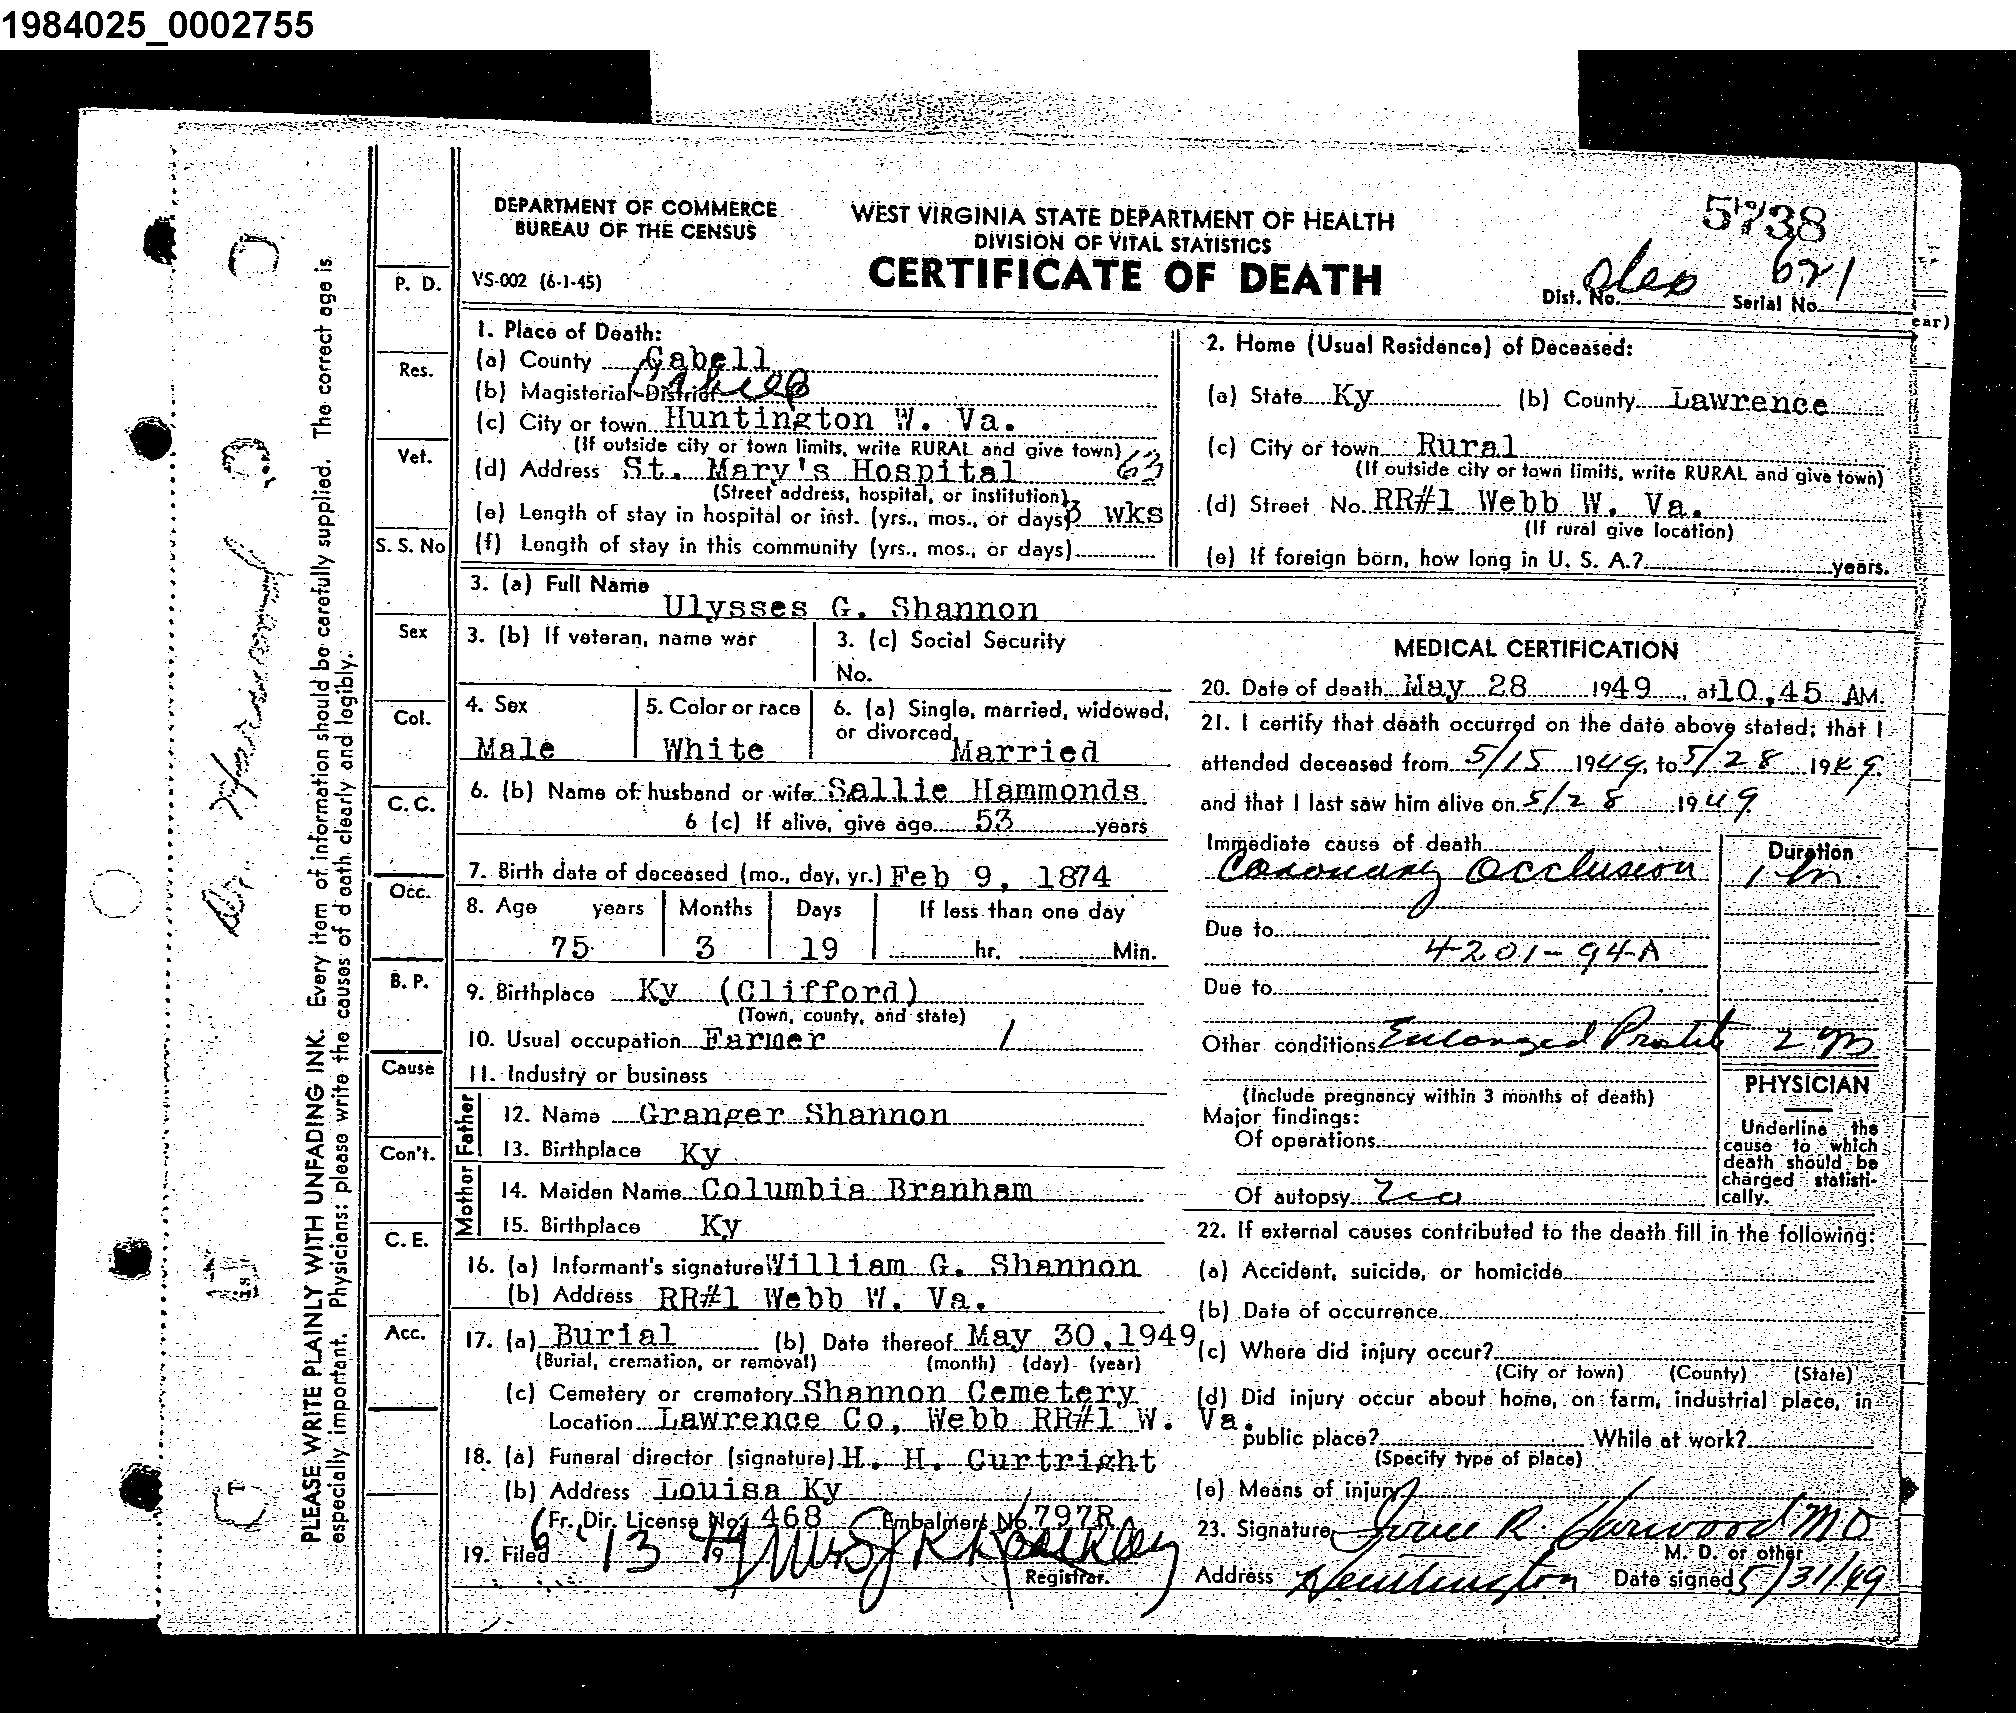 1984025_0002755
DEPARTMENT OF COMMERCE
BUREAU OF THE CENSUS
VS-002 (6-1-45)
WEST VIRGINIA STATE DEPARTMENT OF HEALTH
DIVISION OF VITAL STATISTICS
CERTIFICATE OF DEATH
5738
Dist. No. Serial No. 621
PLEASE WRITE PLAINLY WITH UNFADING INK. Every item of information should be carefully supplied. The correct age is
especially important. Physicians: please write the causes of death clearly and legibly.
P. D.
Res.
Vet.
S. S. No
Sex
Col.
C. C.
Occ.
B. P.
Cause
Con't.
C. E.
Acc.
1. Place of Death:
(a) County Cabell
(b) Magisterial District
(c) City or town Huntington W. Va.
(If outside city or town limits, write RURAL and give town)
(d) Address St. Mary's Hospital 63
(Street address, hospital, or institution)
(e) Length of stay in hospital or inst. (yrs., mos., or days) 3 wks
(f) Length of stay in this community (yrs., mos., or days)
2. Home (Usual Residence) of Deceased:
(a) State Ky (b) County Lawrence
(c) City or town Rural
(If outside city or town limits, write RURAL and give town)
(d) Street No. RR#1 Webb W. Va.
(If rural give location)
(e) If foreign born, how long in U. S. A.? years.
ear)
3. (a) Full Name
Ulysses G. Shannon
3. (b) If veteran, name war
3. (c) Social Security
No.
4. Sex
Male
5. Color or race
White
6. (a) Single, married, widowed,
or divorced Married
6. (b) Name of husband or wife Sallie Hammonds
6 (c) If alive, give age 53 years
7. Birth date of deceased (mo., day, yr.) Feb 9, 1874
8. Age years Months Days If less than one day
75 3 19 hr. Min.
9. Birthplace Ky (Clifford)
(Town, county, and state)
10. Usual occupation Farmer 1
11. Industry or business
Father
12. Name Granger Shannon
13. Birthplace Ky
Mother
14. Maiden Name Columbia Branham
15. Birthplace Ky
16. (a) Informant's signature William G. Shannon
(b) Address RR#1 Webb W. Va.
17. (a) Burial (b) Date thereof May 30, 1949
(Burial, cremation, or removal) (month) (day) (year)
(c) Cemetery or crematory Shannon Cemetery
Location Lawrence Co, Webb RR#1 W. Va.
18. (a) Funeral director (signature) H. H. Curtright
(b) Address Louisa Ky
Fr. Dir. License No. 468 Embalmers No. 797R
19. Filed 6 13 1949
Registrar.
MEDICAL CERTIFICATION
20. Date of death May 28 1949, at 10.45 AM.
21. I certify that death occurred on the date above stated; that I
attended deceased from 5/15 1949, to 5/28 1949
and that I last saw him alive on 5/28 1949
Immediate cause of death
Duration
Coronary Occlusion
Due to
4201-94A
Due to
Other conditions Enlarged 2 m
(Include pregnancy within 3 months of death)
Major findings:
Of operations
Of autopsy no
PHYSICIAN
Underline the
cause to which
death should be
charged statisti-
cally.
22. If external causes contributed to the death fill in the following:
(a) Accident, suicide, or homicide
(b) Date of occurrence
(c) Where did injury occur?
(City or town) (County) (State)
(d) Did injury occur about home, on farm, industrial place, in
public place? While at work?
(Specify type of place)
(e) Means of injury
23. Signature R. Harwood MD
M. D. or other
Address Huntington Date signed 5/31/49